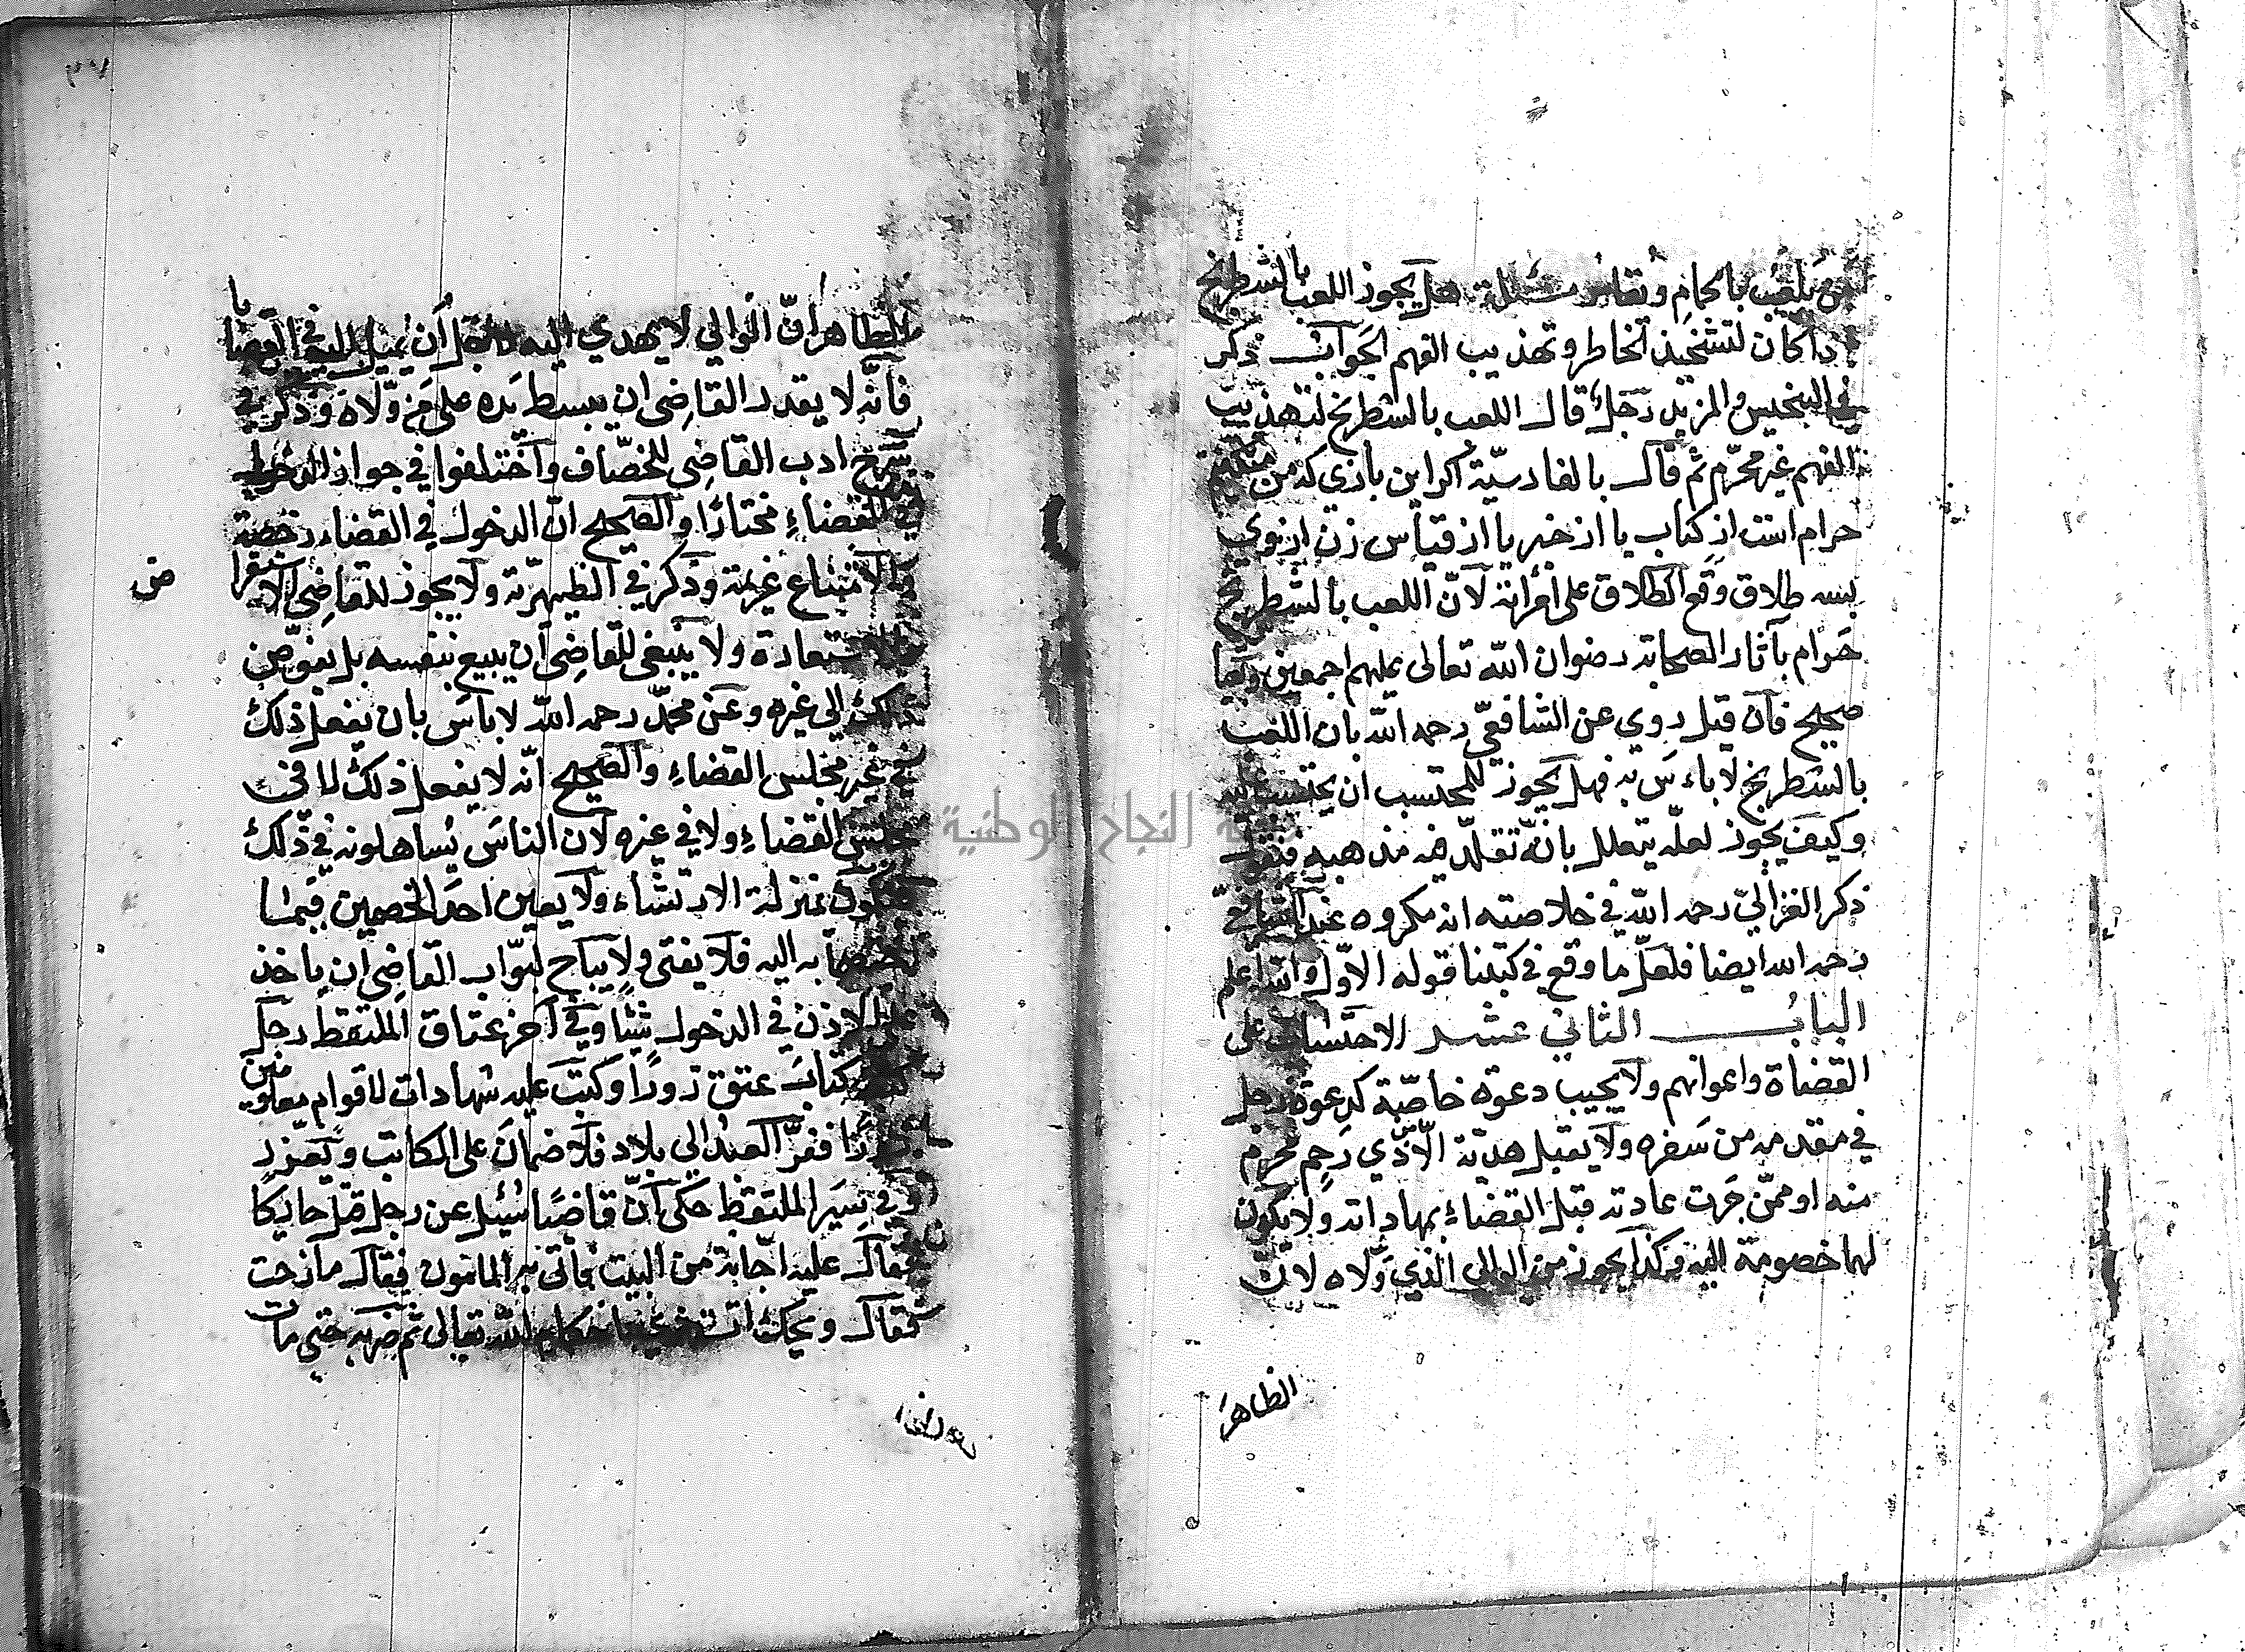 من يلعب بالحمام وتقامر مسئلة هل يجوز اللعب بالشطرنج
اذا كان لتشحيذ الخاطر وتهذيب الفهم الجواب ذكر
في التجنيس والمزيد رجل قال اللعب بالشطرنج لتهذيب
الفهم غير محرم ثم قال بالفارسية اكر اين بازى كه من
حرام است از كتاب يا از خبر يا از قياس زن از وى
بسه طلاق وقع الطلاق على امرأته لان اللعب بالشطرنج
حرام بآثار الصحابة رضوان الله تعالى عليهم اجمعين
صحيح فان قيل روي عن الشافعي رحمه الله بان اللعب
بالشطرنج لا باءس به فهل يجوز للمحتسب ان يحتسب
وكيف يجوز لعله يتعلل بانه تقلد فيه مذهبه فنقول
ذكر الغزالي رحمه الله في خلاصته انه مكروه عند الشافعي
رحمه الله ايضا فلعل ما وقع في كتبنا قوله الاول والله اعلم
الباب الثاني عشر الاحتساب على
القضاة واعوانهم ولا يجيب دعوة خاصة كدعوة رجل
في مقدمه من سفره ولا يقبل هدية الا من ذي رحم محرم
منه او ممن جرت عادته قبل القضاء بمهاداته ولا يكون
لهما خصومة اليه وكذا يجوز من الوالي الذي ولاه لان
الظاهر
الظاهر ان الوالي لا يهدي اليه لاجل ان يميل اليه في القضايا
فانه لا يقدر القاضي ان يبسط يده على من ولاه وذكر في
شرح ادب القاضي للخصاف واختلفوا في جواز الدخول
في القضاء مختارا والصحيح ان الدخول في القضاء رخصة
والامتناع عزيمة وذكر في الظهيرية ولا يجوز للقاضي الاستقراض
والاستعارة ولا ينبغي للقاضي ان يبيع بنفسه بل يفوض
ذلك الى غيره وعن محمد رحمه الله لا باس بان يفعل ذلك
في غير مجلس القضاء والصحيح انه لا يفعل ذلك لا في
مجلس القضاء ولا في غيره لان الناس يساهلونه في ذلك
فيكون بمنزلة الارتشاء ولا يعين احد الخصمين فيما
به اليه فلا يفتى ولا يباح لبواب القاضي ان ياخذ
على الاذن في الدخول شيئا وفي آخر عتاق الملتقط رجل
كتب كتاب عتق زورا وكتب عليه شهادات لاقوام معلومين
زورا ففر العبد الى بلاد فلا ضمان على الكاتب ويعزر
وفي سير الملتقط حكى ان قاضيا سئل عن رجل قتل حايكا
فقال عليه اجابة من البيت فاتى به المامون فقال مازحت
فقال ويحك الله تعالى ثم ضربه حتى مات